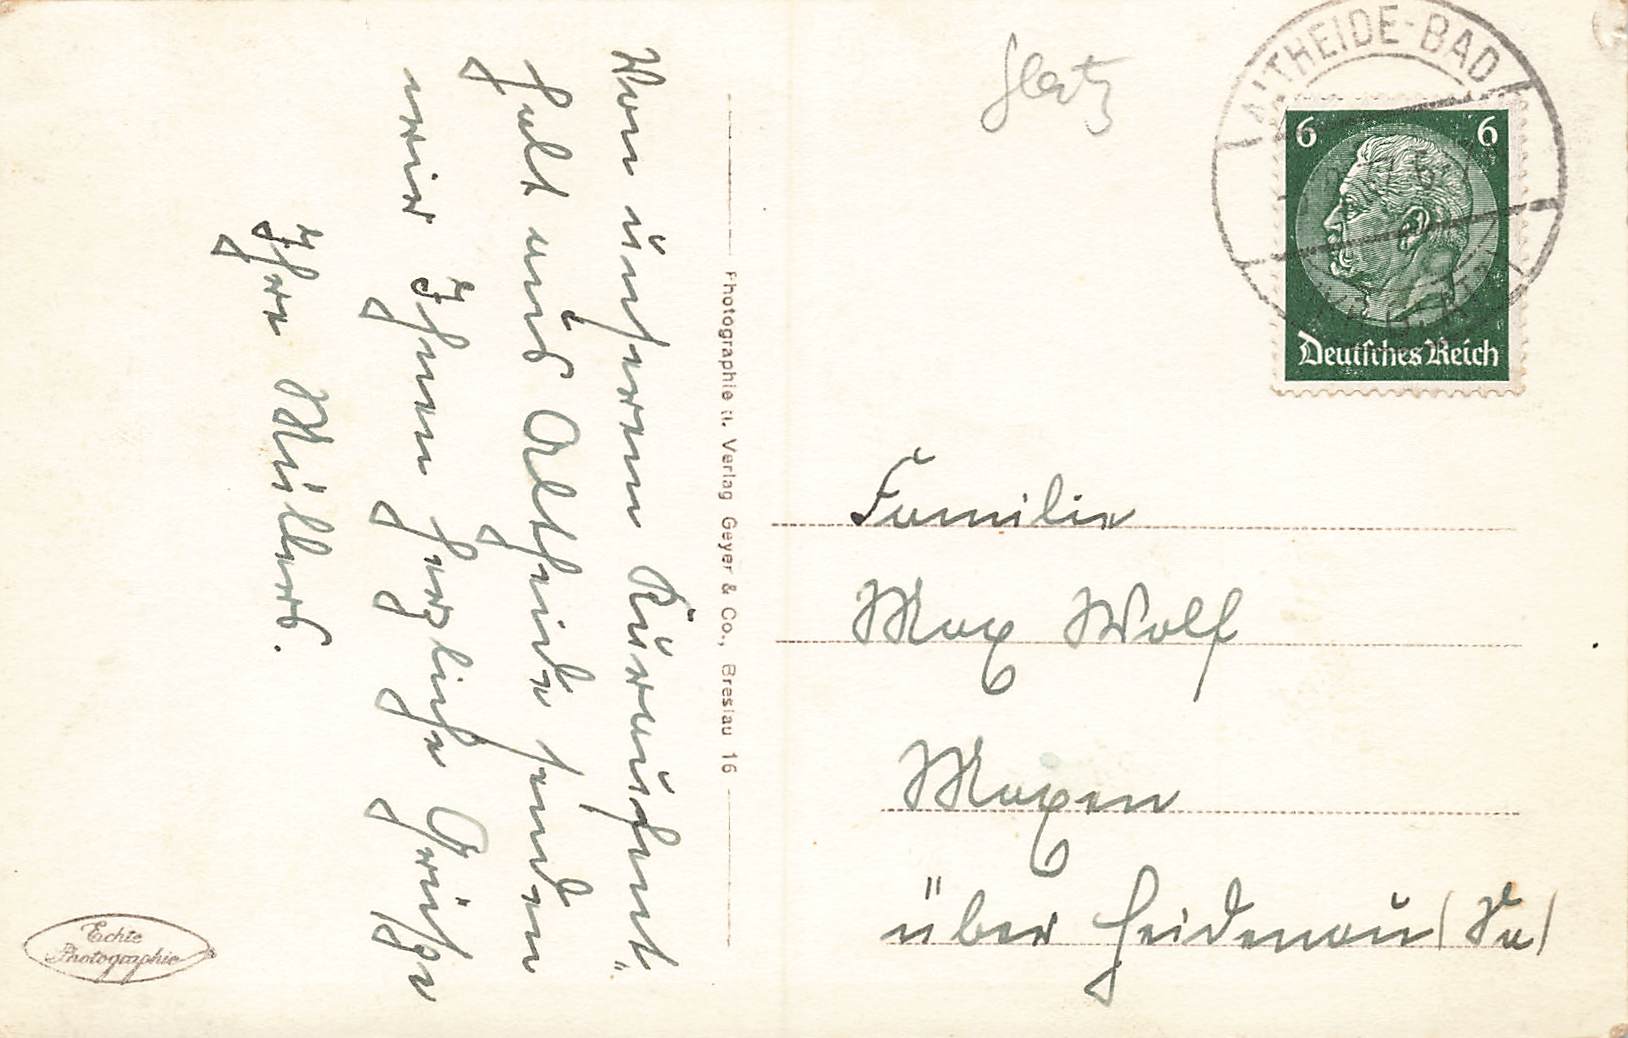 Von unserem Kuraufent-
halt aus Altheide senden
wir Ihnen herzliche Grüße
Ihre Müllers.
Photographie u. Verlag Geyer & Co., Breslau 16
Echte
Photographie
Glatz
ALTHEIDE-BAD
6 6
Deutsches Reich
Familie
Max Wolf
Maxen
über Heidenau (Sa)